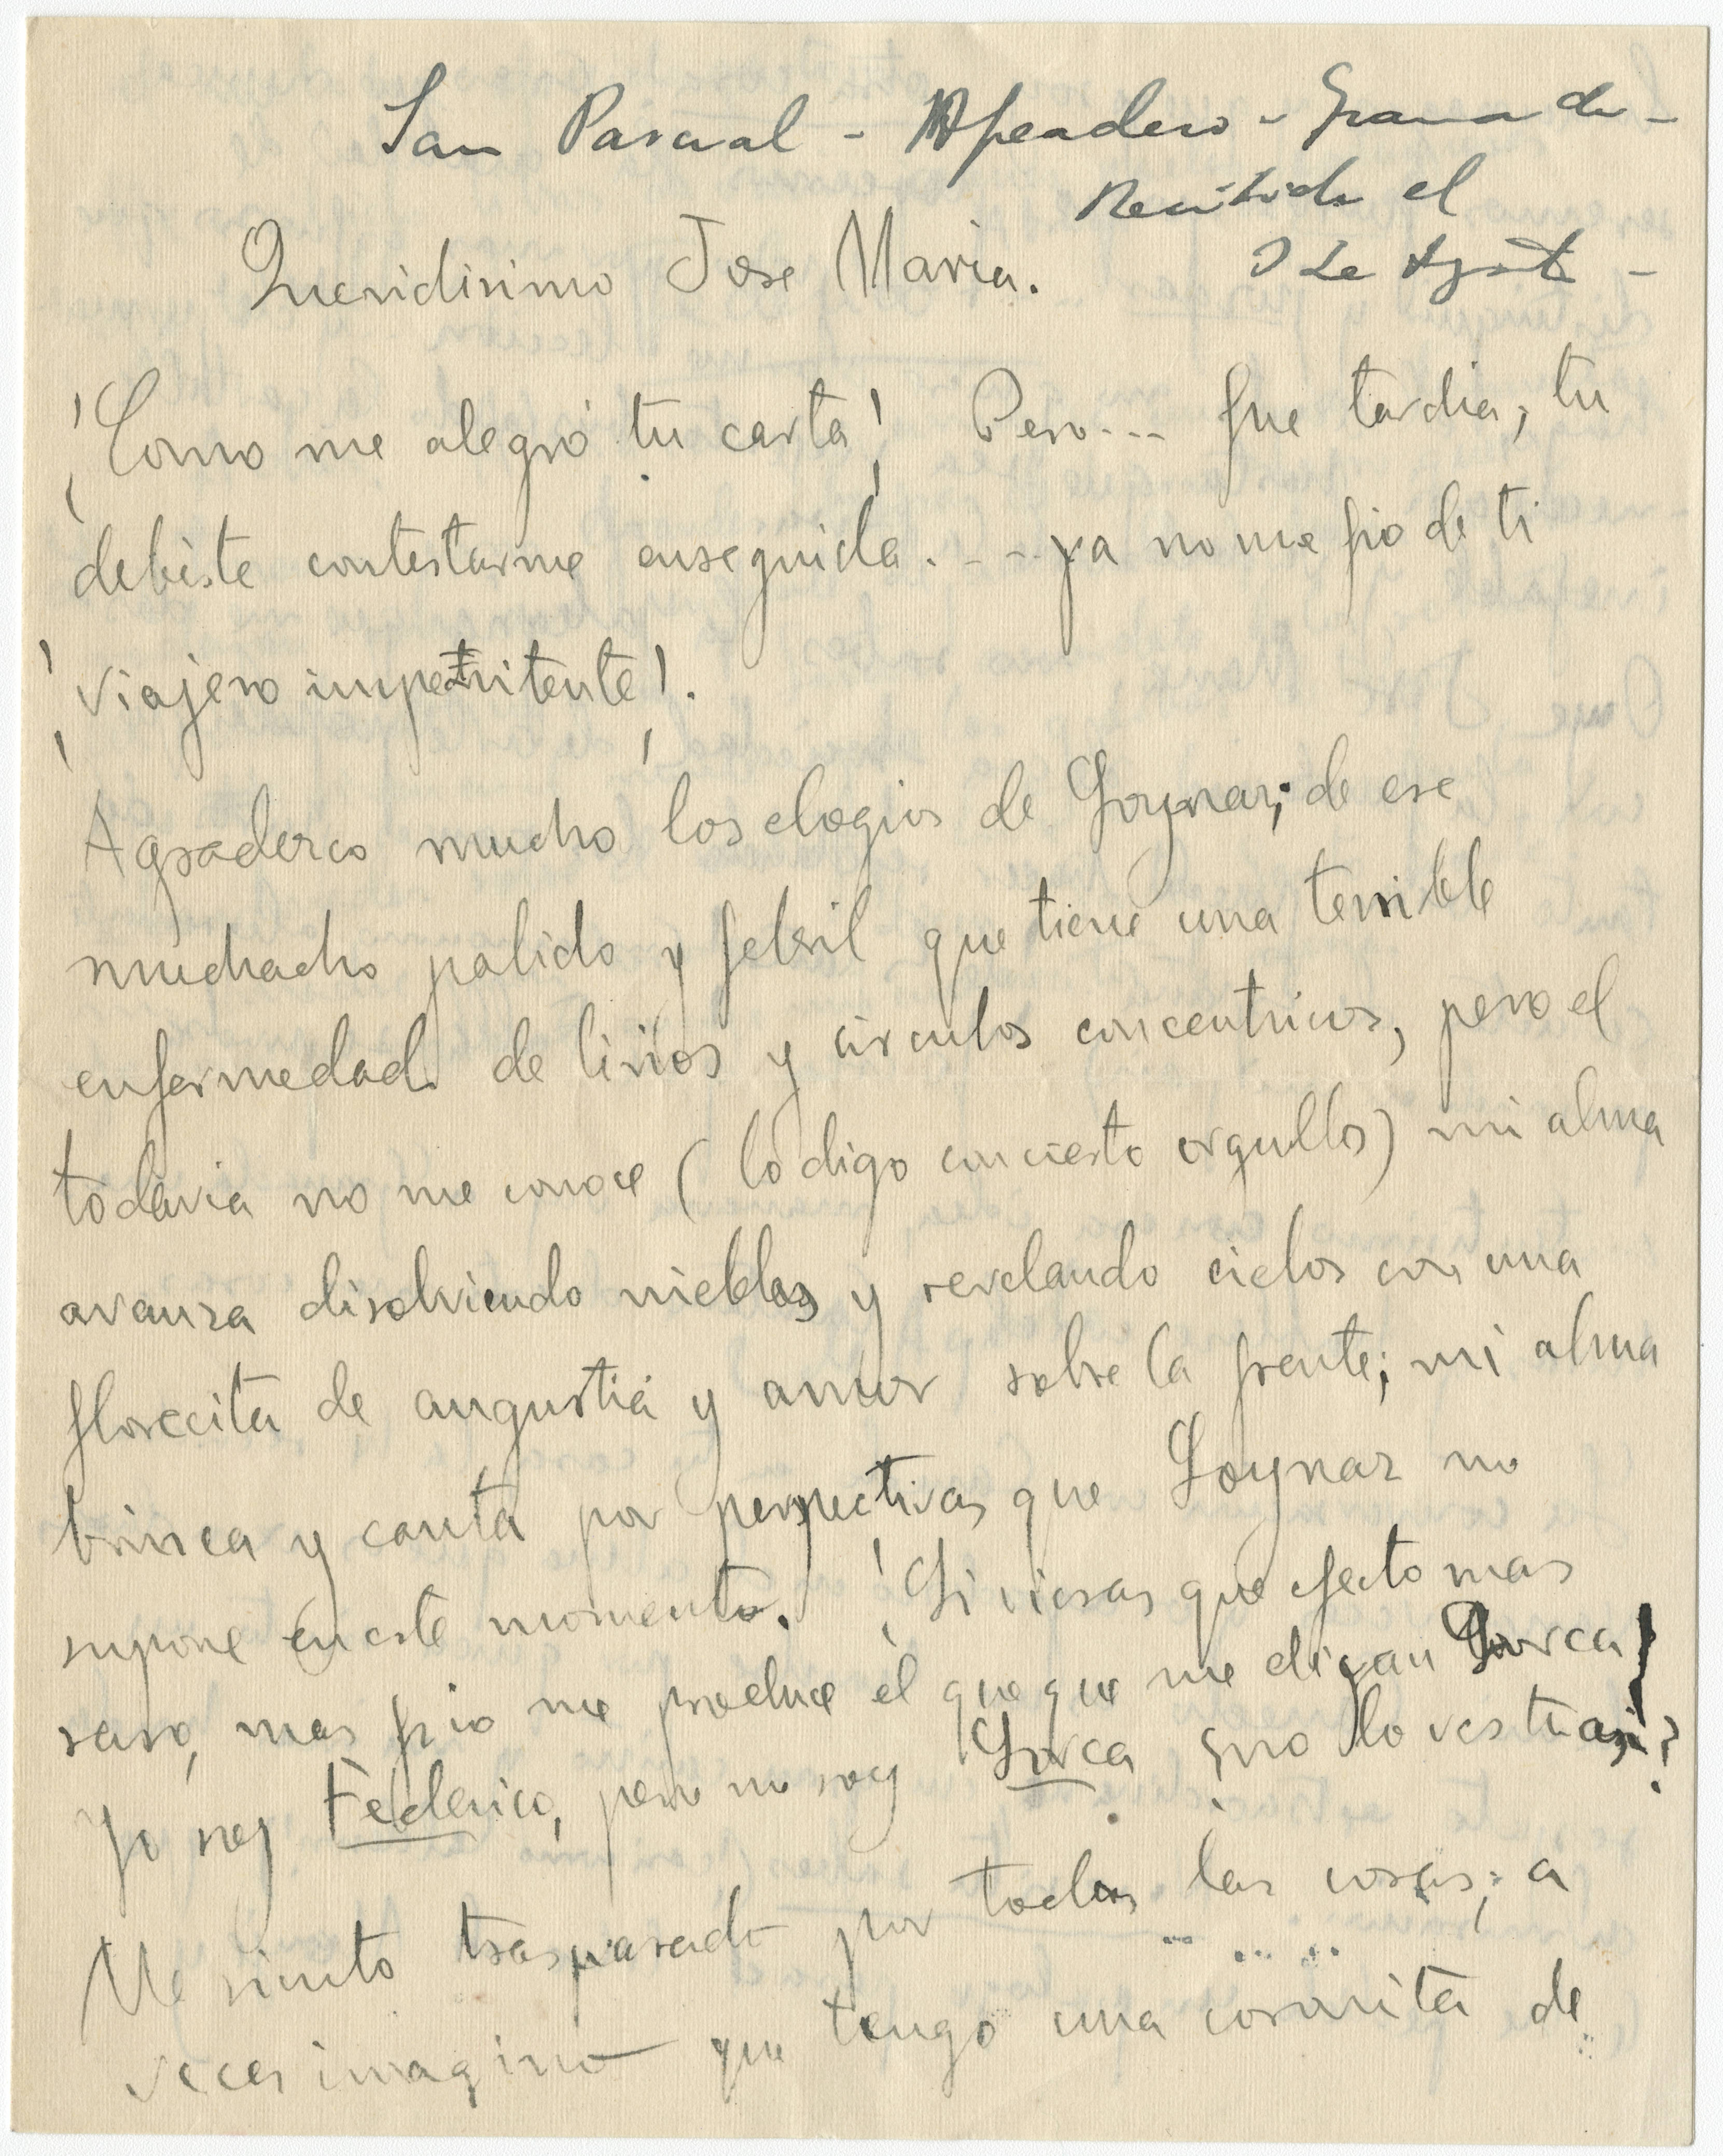 San Pascual - Apeadero - Granada -
Recibida el
2 de Agosto -
Queridisimo Jose Maria.
¡Como me alegró tu carta! Pero... fue tardia, tu
debiste contestarme enseguida. . . . ya no me fio de ti
¡viajero impenitente!.
Agradezco mucho los elogios de Loynaz; de ese
muchacho palido y febril que tiene una terrible
enfermedad de lirios y circulos concentricos, pero el
todavia no me conoce (lo digo con cierto orgullo) mi alma
avanza disolviendo nieblas y revelando cielos con una
florecita de angustia y amor sobre la frente; mi alma
brinca y canta por perspectivas que Loynaz no
supone en este momento. ¡Si vieras que efecto mas
raro, mas frio me produce el que que me digan Lorca!
Yo soy Federico, pero no soy Lorca ¿no lo ves tu asi?
Me siento traspasado por todas las cosas; a
veces imagino que tengo una coronita de